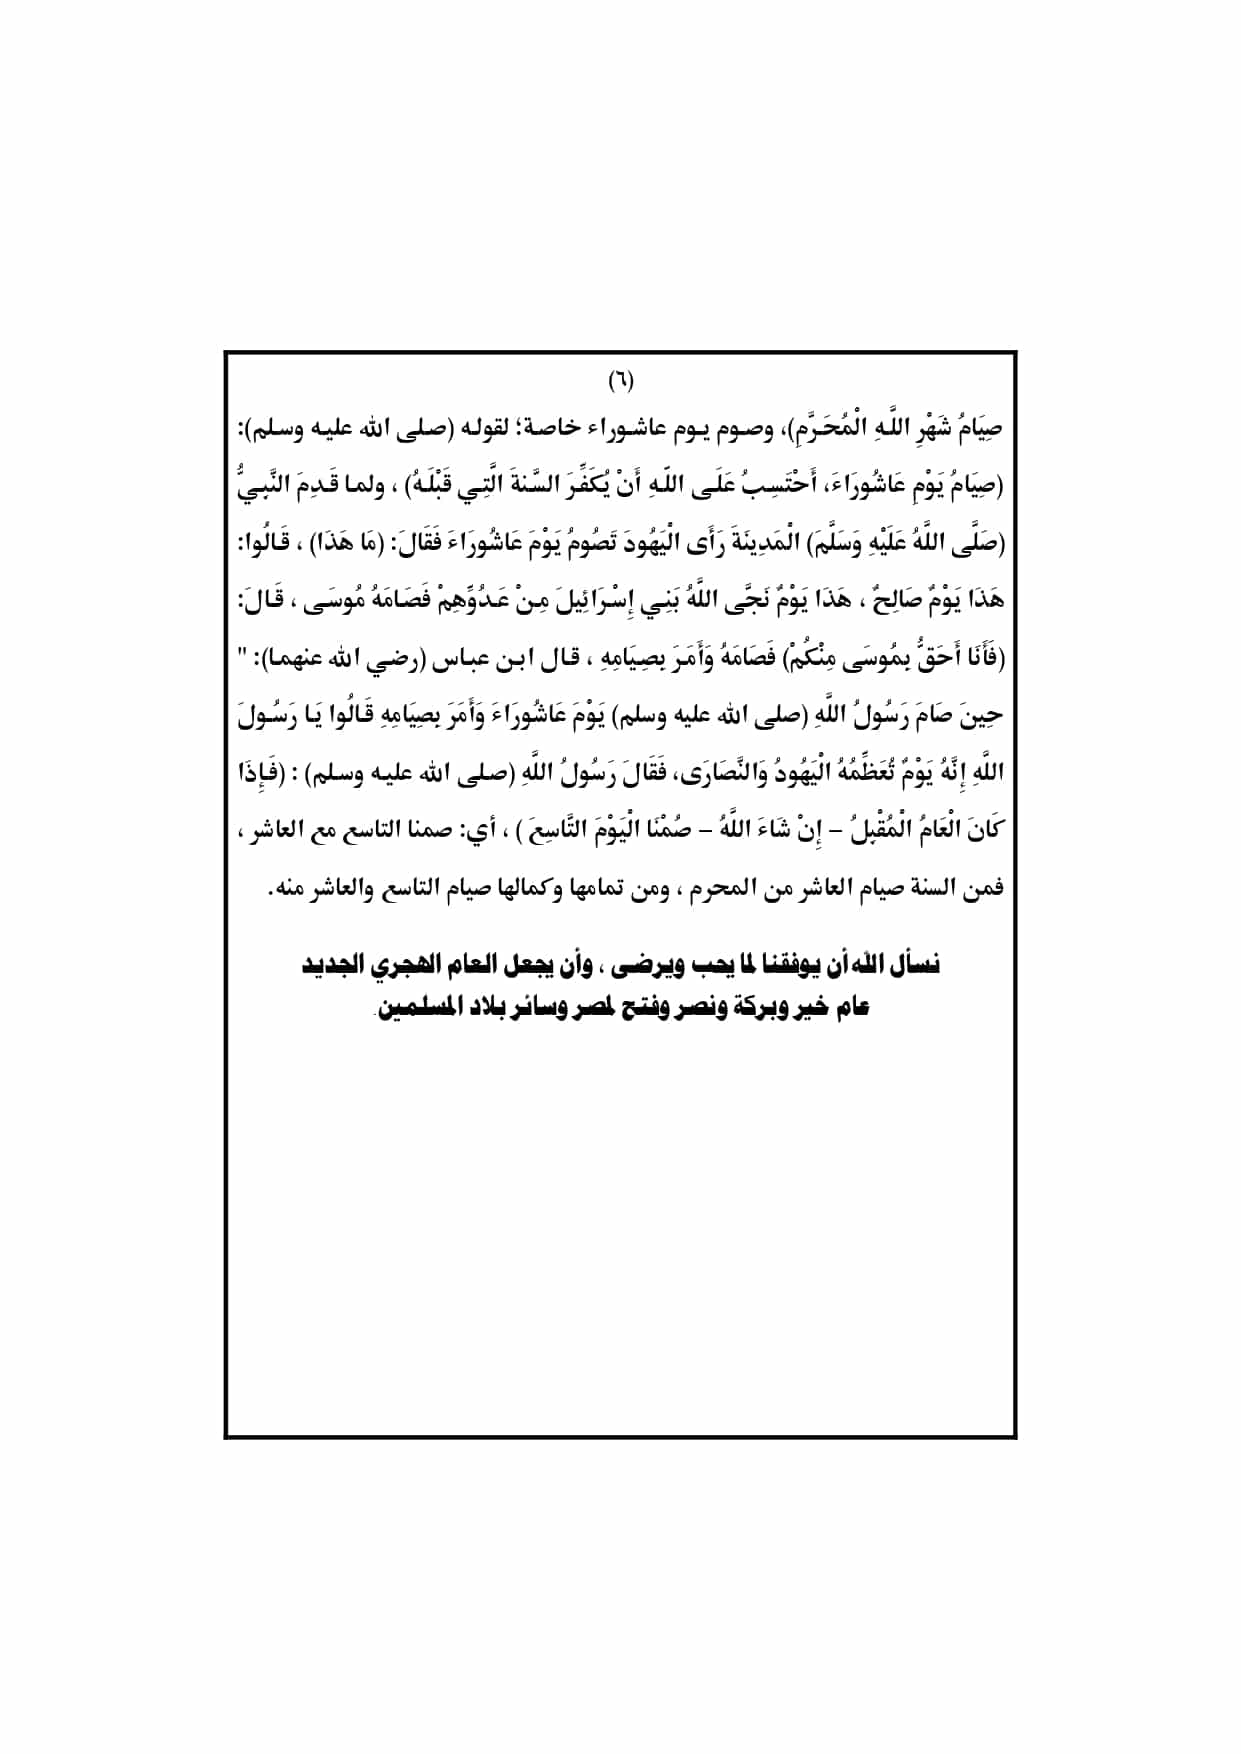 (٦)
صِيَامُ شَهْرِ اللَّهِ الْمُحَرَّمِ)، وصوم يوم عاشوراء خاصة؛ لقوله (صلى الله عليه وسلم):
(صِيَامُ يَوْمِ عَاشُورَاءَ، أَحْتَسِبُ عَلَى اللّهِ أَنْ يُكَفِّرَ السَّنةَ الَّتِي قَبْلَهُ) ، ولما قَدِمَ النَّبِيُّ
(صَلَّى اللَّهُ عَلَيْهِ وَسَلَّمَ) الْمَدِينَةَ رَأَى الْيَهُودَ تَصُومُ يَوْمَ عَاشُورَاءَ فَقَالَ: (مَا هَذَا) ، قَالُوا:
هَذَا يَوْمٌ صَالِحٌ ، هَذَا يَوْمٌ نَجَّى اللَّهُ بَنِي إِسْرَائِيلَ مِنْ عَدُوِّهِمْ فَصَامَهُ مُوسَى ، قَالَ:
(فَأَنَا أَحَقُّ بِمُوسَى مِنْكُمْ) فَصَامَهُ وَأَمَرَ بِصِيَامِهِ ، قال ابن عباس (رضي الله عنهما): "
حِينَ صَامَ رَسُولُ اللَّهِ (صلى الله عليه وسلم) يَوْمَ عَاشُورَاءَ وَأَمَرَ بِصِيَامِهِ قَالُوا يَا رَسُولَ
اللَّهِ إِنَّهُ يَوْمٌ تُعَظِّمُهُ الْيَهُودُ وَالنَّصَارَى، فَقَالَ رَسُولُ اللَّهِ (صلى الله عليه وسلم) : (فَإِذَا
كَانَ الْعَامُ الْمُقْبِلُ – إِنْ شَاءَ اللَّهُ – صُمْنَا الْيَوْمَ التَّاسِعَ ) ، أي: صمنا التاسع مع العاشر ،
فمن السنة صيام العاشر من المحرم ، ومن تمامها وكمالها صيام التاسع والعاشر منه.
نسأل الله أن يوفقنا لما يحب ويرضى ، وأن يجعل العام الهجري الجديد
عام خير وبركة ونصر وفتح لمصر وسائر بلاد المسلمين.